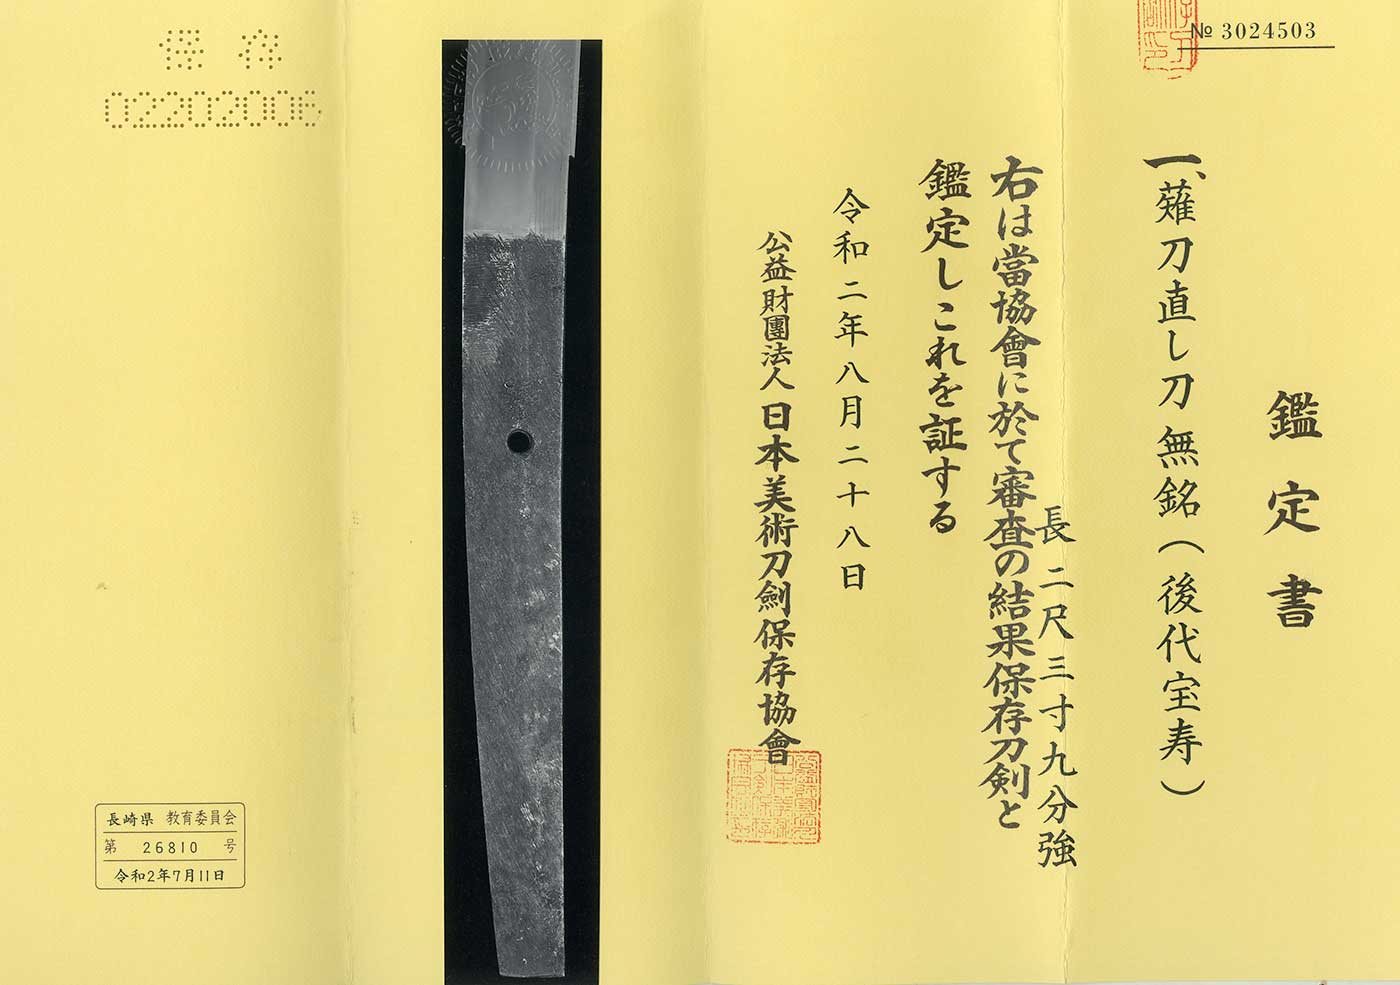 № 3024503
鑑定書
一、薙刀直し刀 無銘(後代宝寿)
長 二尺三寸九分強
右は當協會に於て審査の結果保存刀剣と
鑑定しこれを証する
令和二年八月二十八日
公益財團法人 日本美術刀劍保存協會
保存
02202006
長崎県 教育委員会
第 26810 号
令和2年7月11日